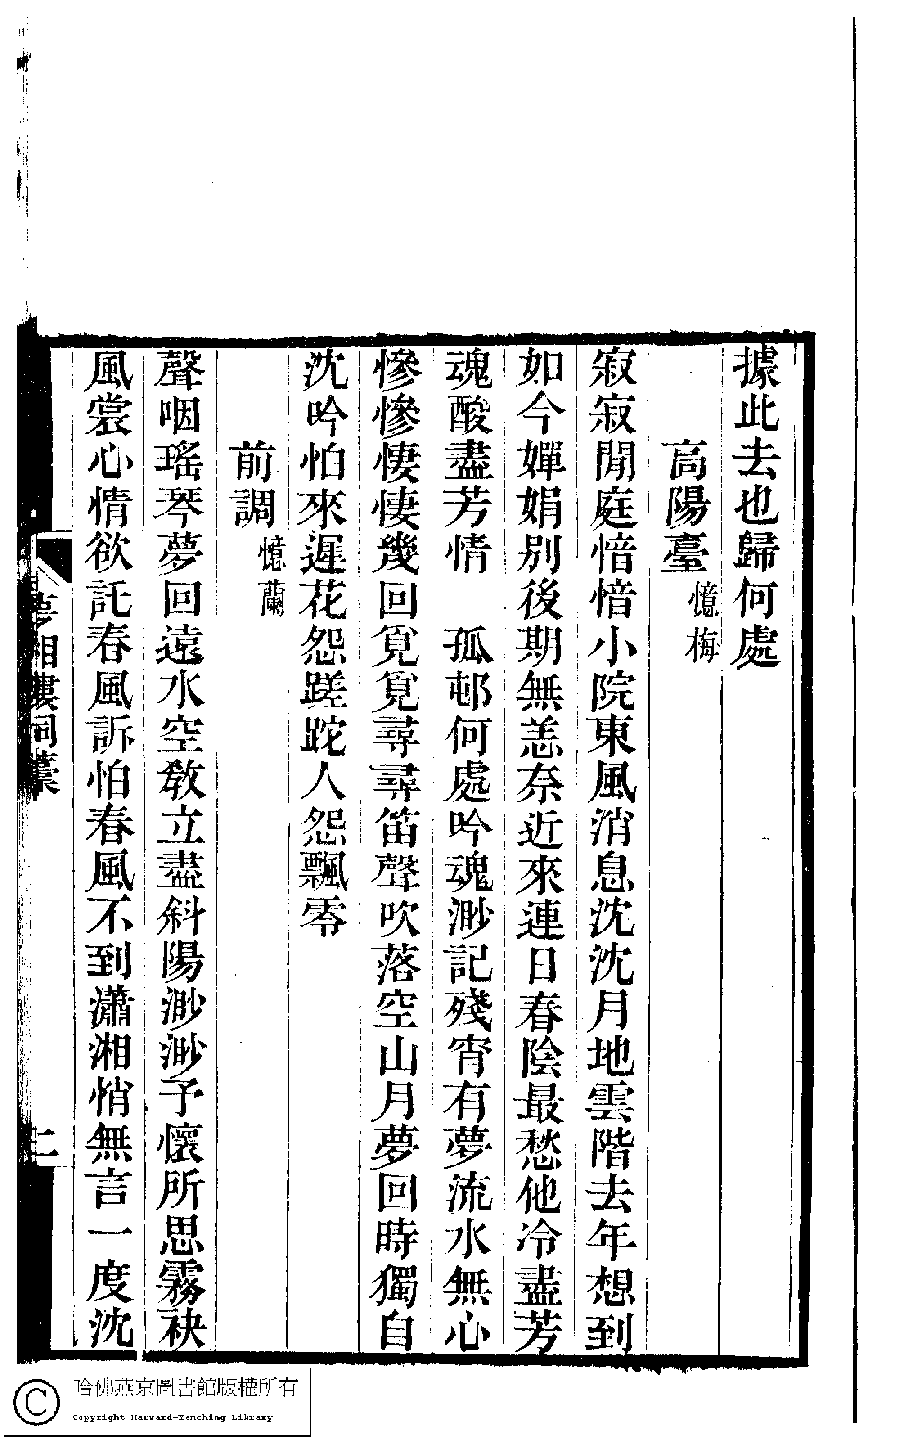 據此去也歸何處
高陽臺憶梅
寂寂閒庭愔愔小院東風消息沈沈月地雲階去年想到
如今嬋娟別後期無恙奈近來連日春陰最愁他冷盡芳
魂酸盡芳情　孤邨何處吟魂渺記殘宵有夢流水無心
慘慘悽悽幾回覓覓尋尋笛聲吹落空山月夢回時獨自
沈吟怕來遲花怨蹉跎人怨飄零
前調憶蘭
聲咽瑤琴夢回遠水空教立盡斜陽渺渺予懷所思霧袂
風裳心情欲託春風訴怕春風不到瀟湘悄無言一度沈
夢湘樓詞藳
哈佛燕京圖書館版權所有
Copyright Harvard-Yenching Library